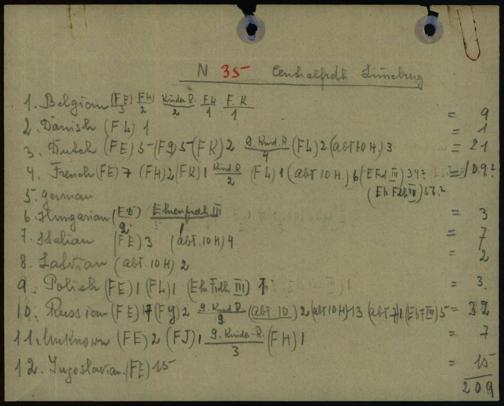 N 35 Centralfrdh Lüneburg
1. Belgian (FE) 3 FH 2 Kinder. R. 2 F4 1 F.K 1 = 9
2. Danish (F4) 1 = 1
3. Dutch (FE) 5 (F9) 5 (FK) 2 g. Kind. R. 4 (F4) 2 (abt 10 H) 3 = 21
4. French (FE) 7 (FH) 2 (FK) 1 Kind R 2 (F4) 1 (abt. 10 H) 6 (Efrd III) 34? = 109?
(Eh Frdh III) 56?
5. German
6. Hungarian (ED) 2 Ehrenfrdh III 1 = 3
7. Italian (FE) 3 (abt. 10 H) 4 = 7
8. Latvian (abt. 10 H) 2 = 2
9. Polish (FE) 1 (F4) 1 (Eh Frdh III) 1 = 3.
10. Russian (FE) (F9) 2 g. Kind R 9 (abt 10) 2 (abt 10 H) 13 5 = 32
11. Unknown (FE) 2 (FJ) 1 g. Kinder. R. 3 (FH) 1 = 7
12. Jugoslavian. (FE) 15 = 15
209